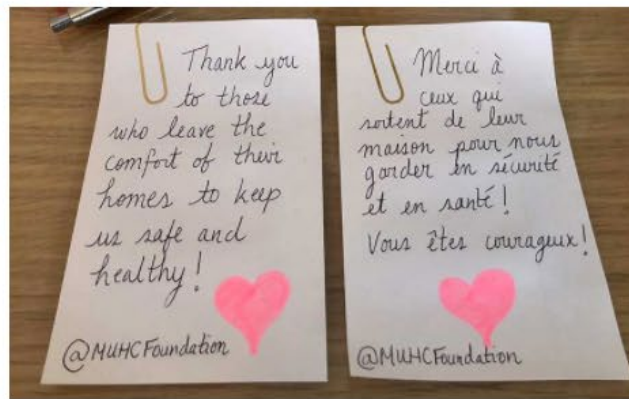 Thank you
to those
who leave the
comfort of their
homes to keep
us safe and
healthy!
@MUHCFoundation
Merci à
ceux qui
sortent de leur
maison pour nous
garder en sécurité
et en santé!
Vous êtes courageux!
@MUHCFoundation